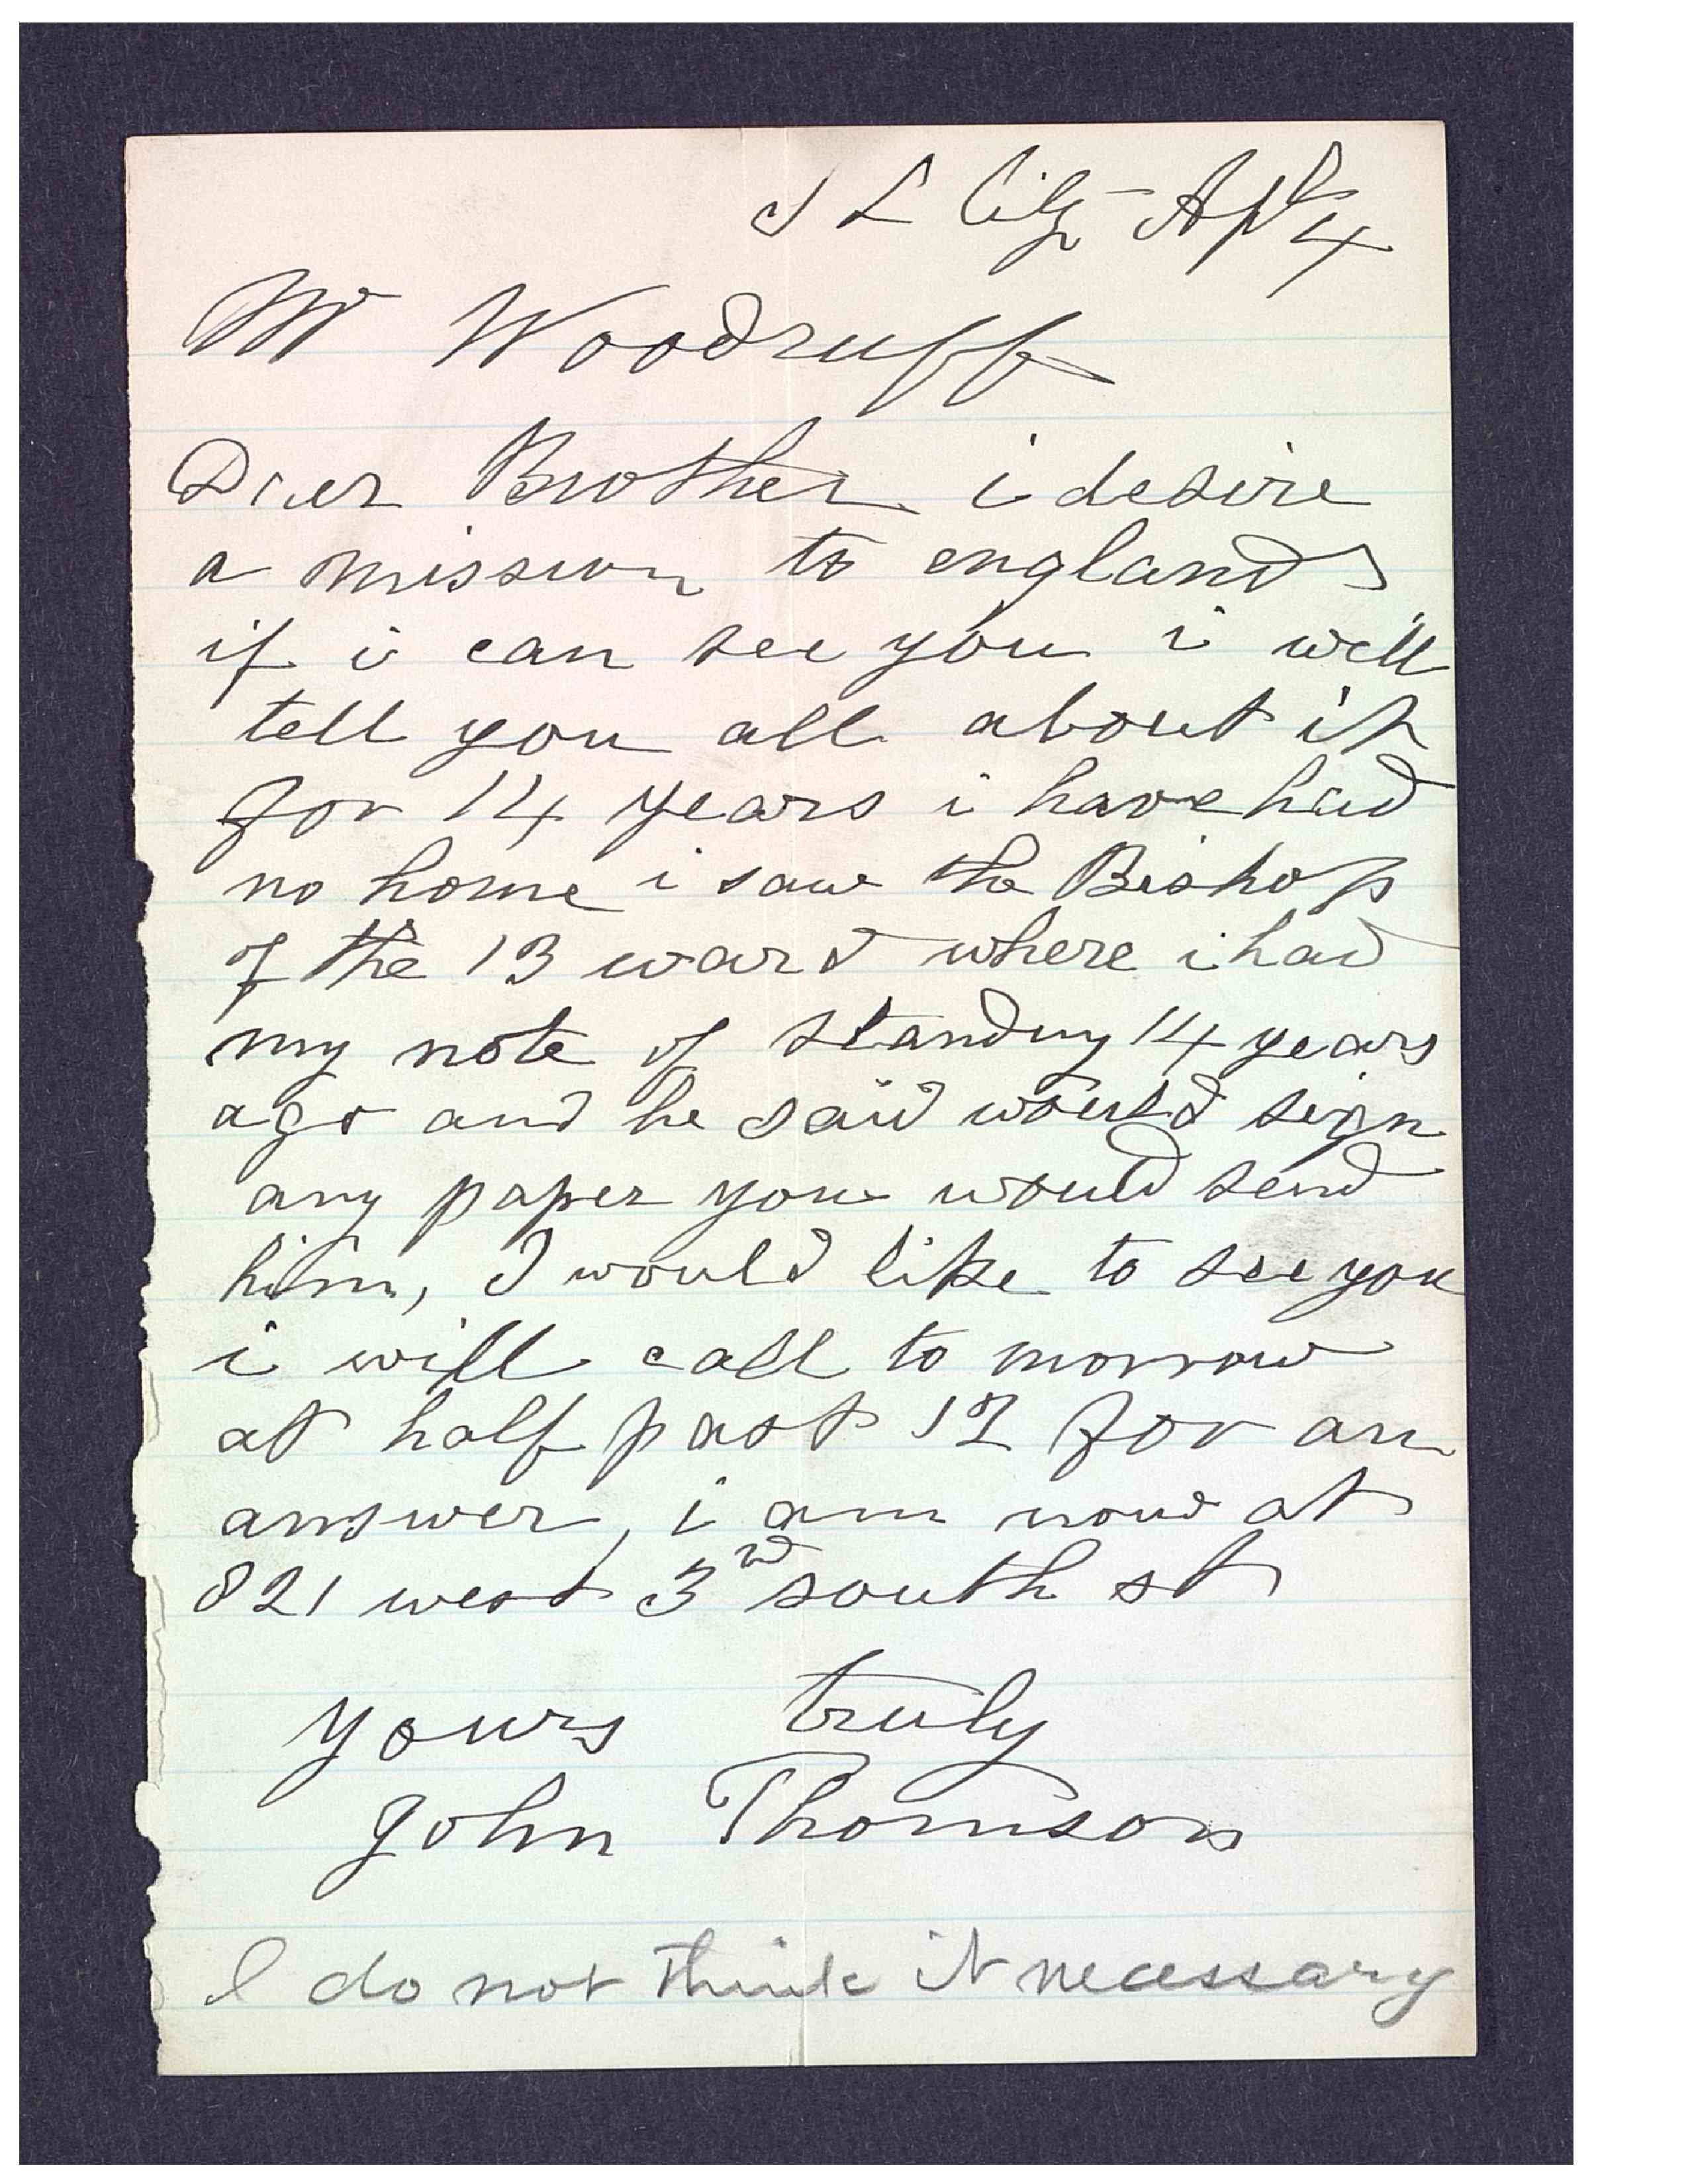 S L City Apl 4
Mr Woodruff
Dear Brother i desire
a mission to england
if i can see you i will
tell you all about it
for 14 years i have had
no home i saw the Bishop
of the 13 ward where i had
my note of standing 14 years
ago and he said would sign
any paper you would send
him, I would like to see you
i will call to morrow
at half past 12 for an
answer, i am now at
821 west 3rd south st
yours truly
John Thomson
I do not think it necessary